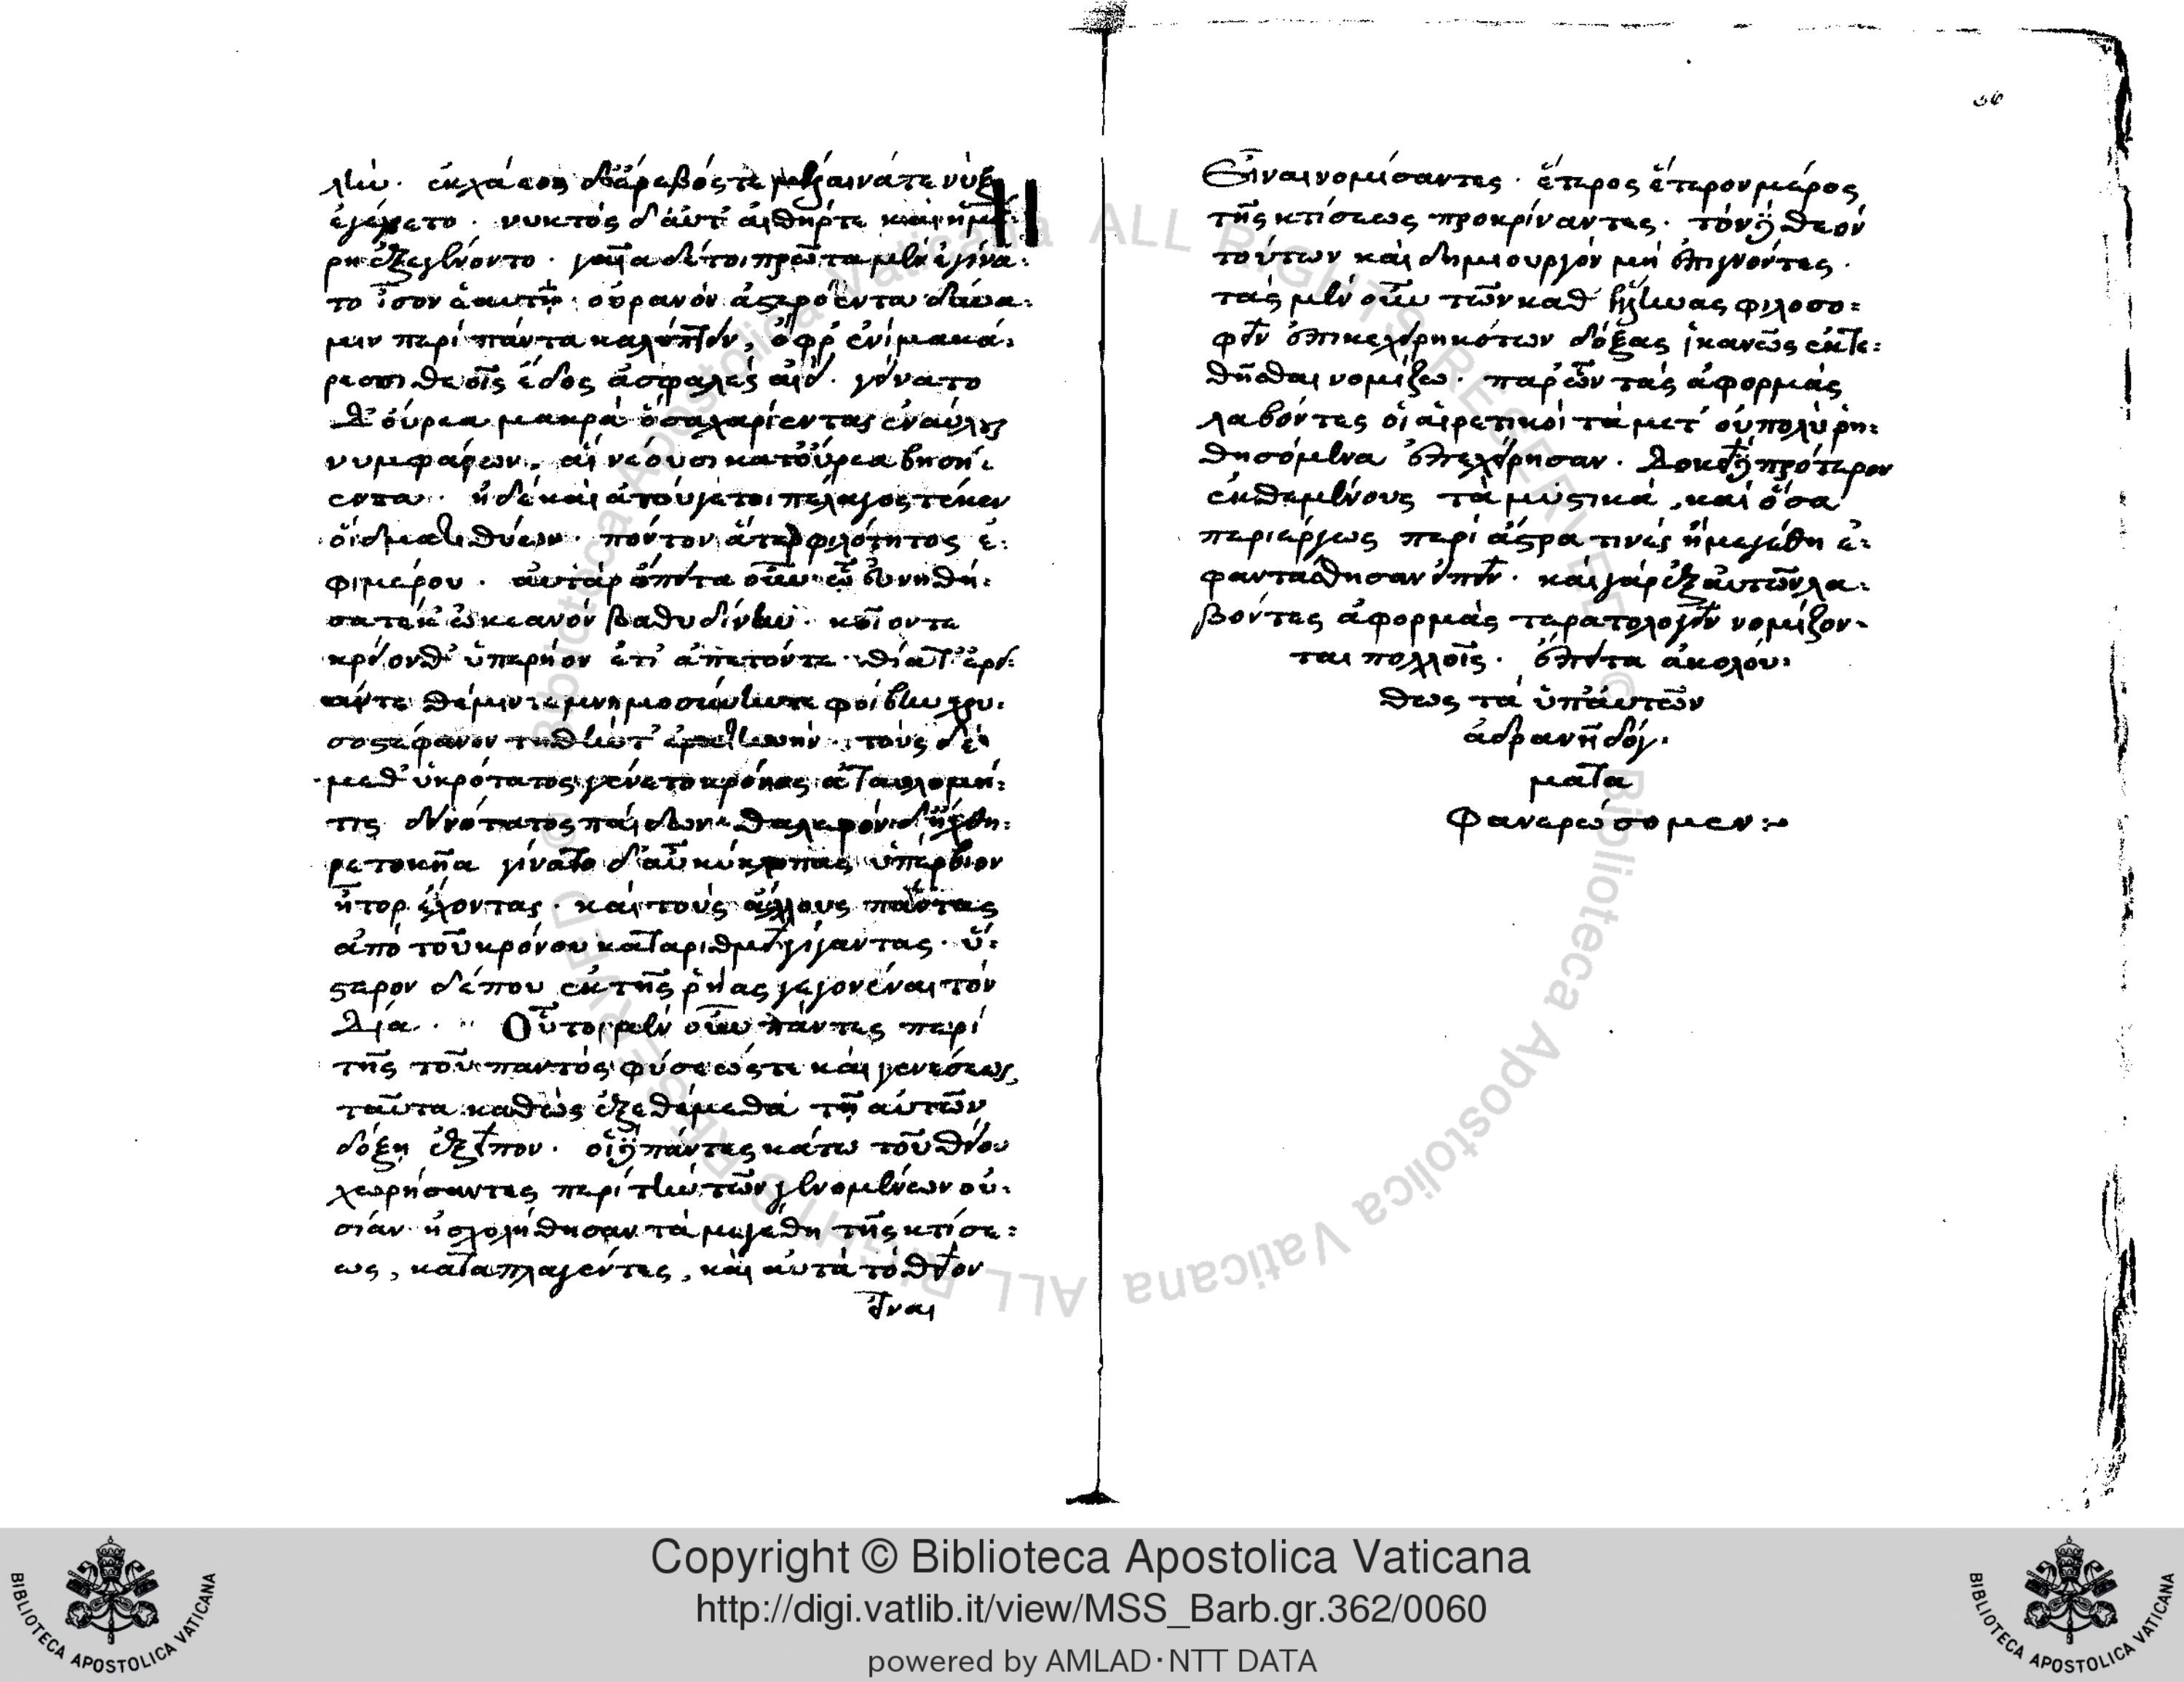 λὴν. ἐκ χάεος δ' ἔρεβός τε μέλαινά τε νὺξ
ἐγένετο. νυκτὸς δ' αὖτ' αἰθήρ τε καὶ ἡμέ-
ρη ἐξεγένοντο. γαῖα δέ τοι πρῶτα μὲν ἐγίνα-
το ἶσον ἑαυτῇ οὐρανὸν ἀστερόεντα
μιν περὶ πάντα καλύπτοι, ὄφρ' ἐνὶ μακά-
ρεσσι θεοῖς ἕδος ἀσφαλὲς αἰεί. γείνατο
δ' οὔρεα μακρὰ
νυμφαίων, αἳ νέουσι κατ' οὔρεα βησή-
εντα. ἡ δὲ καὶ ἀτρύγετοι πέλαγος τέκεν
οἴδματι θύεων. πόντον ἄτερ φιλότητος ἐ-
φιμέρου. αὐτὰρ ἔπειτα εὐνηθεῖ-
σα τέκ' ὠκεανὸν βαθυδίνην. κοῖόν τε
κρεῖόνθ' ὑπερίον' ἔτι ἀπετόν τε.
θέμιν τε μνημοσύνην τε φοίβην χρυ-
σοστέφανον τηθύν τ' ἐρατεινήν. τοὺς δὲ
μέθ' ὑκρότατος γένετο κρόνος ἀγκυλομή-
τις δεινότατος παίδων. θαλερὸν δ' ἤχθη-
ρε τοκῆα γίνατο δ' αὖ κύκλωπας ὑπέρβιον
ἦτορ ἔχοντας. καὶ τοὺς ἄλλους πάντας
ἀπὸ τοῦ κρόνου καταριθμεῖ γίγαντας. ὕ-
στερον δέ που ἐκ τῆς ῥέας γεγονέναι τὸν
Δία. Οὗτοι μὲν οὖν πάντες περὶ
τῆς τοῦ παντὸς φύσεώς τε καὶ γενέσεως,
ταῦτα καθὼς ἐξεθέμεθα τῇ αὐτῶν
δόξῃ ἐξεῖπον. οἱ δὲ πάντες κάτω τοῦ θείου
χωρήσαντες περὶ τὴν τῶν γενομένων οὐ-
σίαν ἠσχολήθησαν τὰ μεγέθη τῆς κτίσε-
ως, καταπλαγέντες, καὶ αὐτὰ τὸ θεῖον
εἶναι
Εἶναι νομίσαντες. ἕτερος ἕτερον μέρος
τῆς κτίσεως προκρίναντες. τὸν δὲ θεὸν
τούτων καὶ δημιουργὸν μὴ ἐπιγνόντες.
τὰς μὲν οὖν τῶν καθ' ἕλληνας φιλοσο-
φεῖν ἐπικεχειρηκότων δόξας ἱκανῶς ἐκτε-
θῆσθαι νομίζω. παρ' ὧν τὰς ἀφορμὰς
λαβόντες οἱ αἱρετικοὶ τὰ μετ' οὐ πολὺ ῥη-
θησόμενα ἐπεχείρησαν. Δοκεῖ δὲ πρότερον
ἐκθεμένους τὰ μυστικὰ, καὶ ὅσα
περιέργως περὶ ἄστρα τινὲς ἢ μεγέθη ἐ-
φαντάσθησαν εἰπεῖν. καὶ γὰρ ἐξ αὐτῶν λα-
βόντες ἀφορμὰς τερατολογεῖν νομίζον-
ται πολλοῖς. ἔπειτα ἀκολού-
θως τὰ ὑπ' αὐτῶν
ἀδρανῆ δόγ-
ματα
φανερώσομεν:
Copyright © Biblioteca Apostolica Vaticana
http://digi.vatlib.it/view/MSS_Barb.gr.362/0060
powered by AMLAD·NTT DATA
BIBLIOTECA APOSTOLICA VATICANA
BIBLIOTECA APOSTOLICA VATICANA